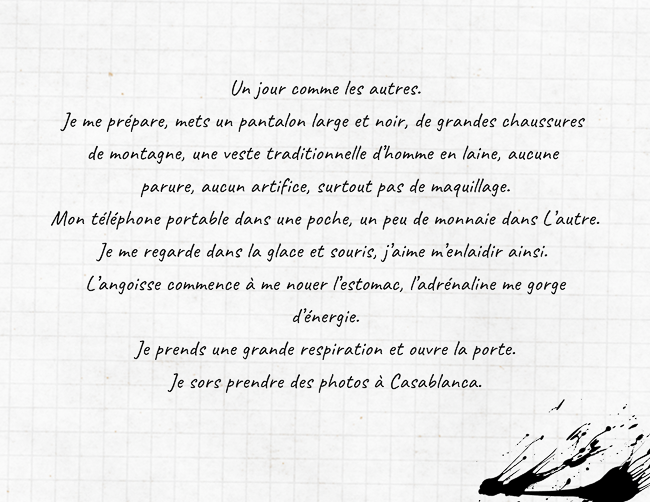 Un jour comme les autres.
Je me prépare, mets un pantalon large et noir, de grandes chaussures
de montagne, une veste traditionnelle d'homme en laine, aucune
parure, aucun artifice, surtout pas de maquillage.
Mon téléphone portable dans une poche, un peu de monnaie dans L'autre.
Je me regarde dans la glace et souris, j'aime m'enlaidir ainsi.
L'angoisse commence à me nouer l'estomac, l'adrénaline me gorge
d'énergie.
Je prends une grande respiration et ouvre la porte.
Je sors prendre des photos à Casablanca.